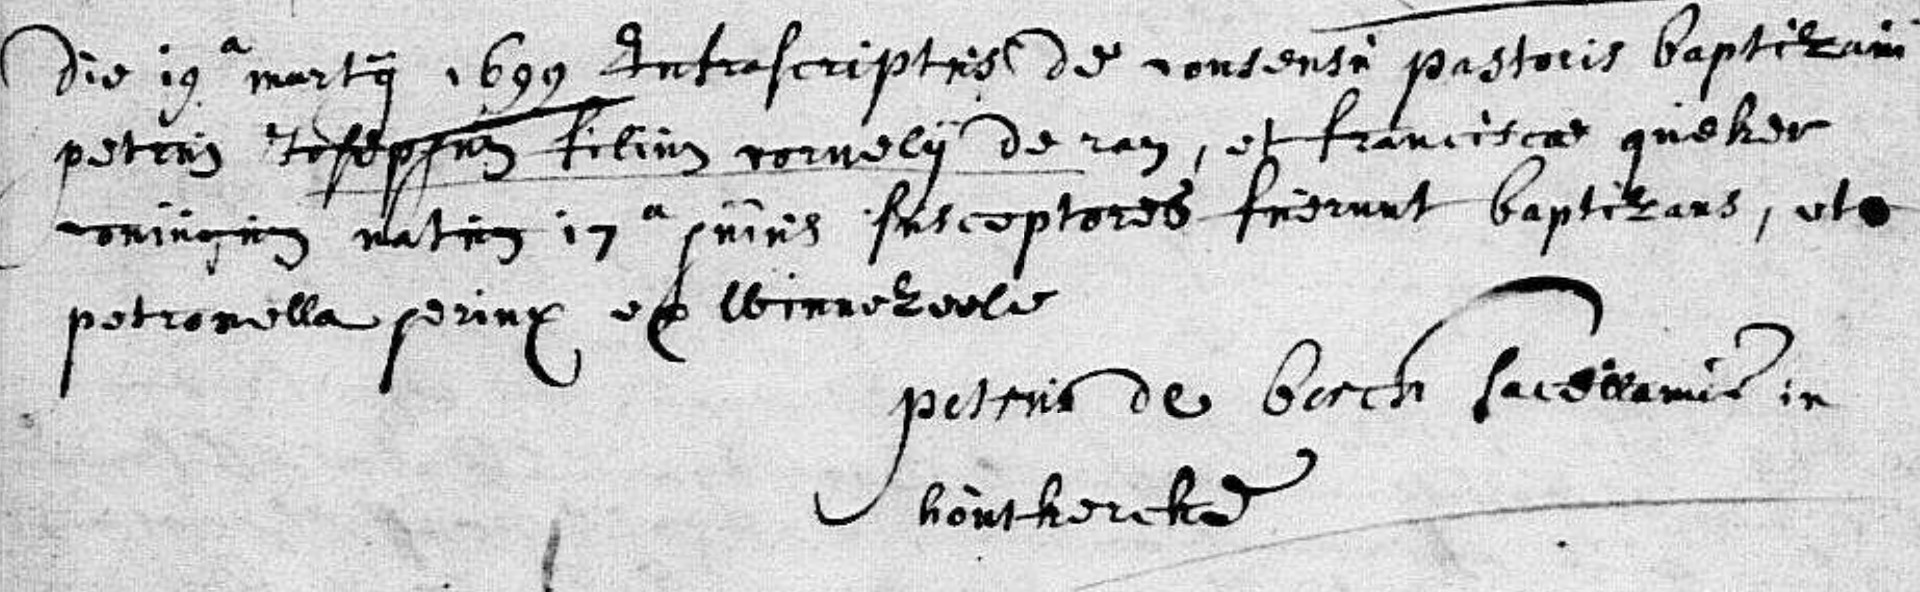 die 19a martij 1699 Infrascriptus de consensu pastoris baptizavi
petrum Josephum filium cornelij de ram, et franciscae queker
coniugum natum 17a huius susceptores fuerunt baptizans, et
petronella serinx ex Winnezeele
petrus de bosch sacellanus in
hontkercke